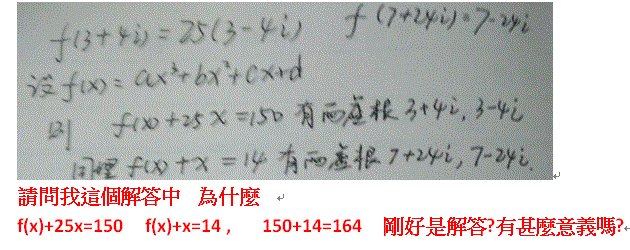 f(3+4i)=25(3-4i) f(7+24i)=7-24i
設 f(x)=ax³+bx²+cx+d
則 f(x)+25x=150 有兩虛根 3+4i, 3-4i
同理 f(x)+x=14 有兩虛根 7+24i, 7-24i.
請問我這個解答中 為什麼
f(x)+25x=150 f(x)+x=14 , 150+14=164 剛好是解答?有甚麼意義嗎?